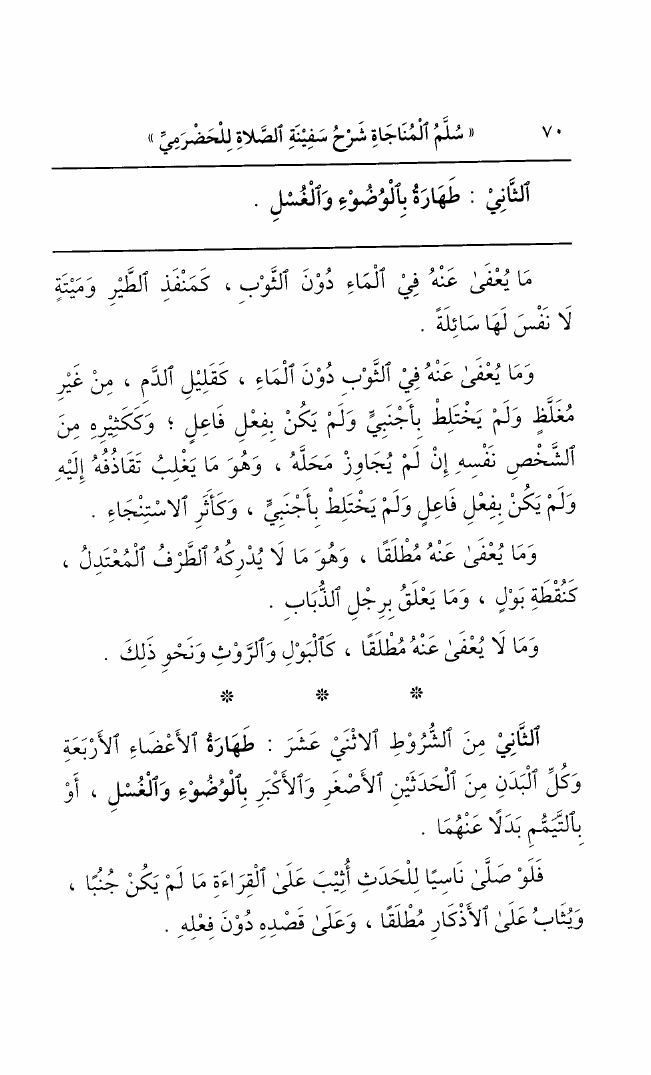 ٧٠ « سُلَّمُ ٱلْمُنَاجَاةِ شَرْحُ سَفِيْنَةِ ٱلصَّلَاةِ لِلْحَضْرَمِيِّ »
ٱلثَّانِيْ : طَهَارَةُ بِٱلْوُضُوْءِ وَٱلْغُسْلِ .
مَا يُعْفَىٰ عَنْهُ فِيْ ٱلْمَاءِ دُوْنَ ٱلثَّوْبِ ، كَمَنْفَذِ ٱلطَّيْرِ وَمَيْتَةٍ
لَا نَفْسَ لَهَا سَائِلَةً .
وَمَا يُعْفَىٰ عَنْهُ فِيْ ٱلثَّوْبِ دُوْنَ ٱلْمَاءِ ، كَقَلِيْلِ ٱلدَّمِ ، مِنْ غَيْرِ
مُغَلَّظٍ وَلَمْ يَخْتَلِطْ بِأَجْنَبِيٍّ وَلَمْ يَكُنْ بِفْعلِ فَاعِلٍ ؛ وَكَكَثِيْرِهِ مِنَ
ٱلشَّخْصِ نَفْسِهِ إِنْ لَمْ يُجَاوِزْ مَحَلَّهُ ، وَهُوَ مَا يَغْلِبُ تَقَاذُفُهُ إِلَيْهِ
وَلَمْ يَكُنْ بِفِعْلِ فَاعِلٍ وَلَمْ يَخْتَلِطْ بِأَجْنَبِيٍّ ، وَكَأَثَرِ ٱلاسْتِنْجَاءِ .
وَمَا يُعْفَىٰ عَنْهُ مُطْلَقًا ، وَهُوَ مَا لَا يُدْرِكُهُ ٱلطَّرْفُ ٱلْمُعْتَدِلُ ،
كَنُقْطَةِ بَوْلٍ ، وَمَا يَعْلَقُ بِرِجْلِ ٱلذُّبَابِ .
وَمَا لَا يُعْفَىٰ عَنْهُ مُطْلَقًا ، كَٱلْبَوْلِ وَٱلرَّوْثِ وَنَحْوِ ذَلِكَ .
* * *
ٱلثَّانِيْ مِنَ ٱلشُّرُوْطِ ٱلاثْنَيْ عَشَرَ : طَهَارَةُ ٱلأَعْضَاءِ ٱلأَرْبَعَةِ
وَكُلِّ ٱلْبَدَنِ مِنَ ٱلْحَدَثَيْنِ ٱلأَصْغَرِ وَٱلأَكْبَرِ بِٱلْوُضُوْءِ وَٱلْغُسْلِ ، أَوْ
بِٱلتَّيَمُّمِ بَدَلًا عَنْهُمَا .
فَلَوْ صَلَّىٰ نَاسِيًا لِلْحَدَثِ أُثِيْبَ عَلَىٰ ٱلْقِرَاءَةِ مَا لَمْ يَكُنْ جُنُبًا ،
وَيُثَابُ عَلَىٰ ٱلأَذْكَارِ مُطْلَقًا ، وَعَلَىٰ قَصْدِهِ دُوْنَ فِعْلِهِ .